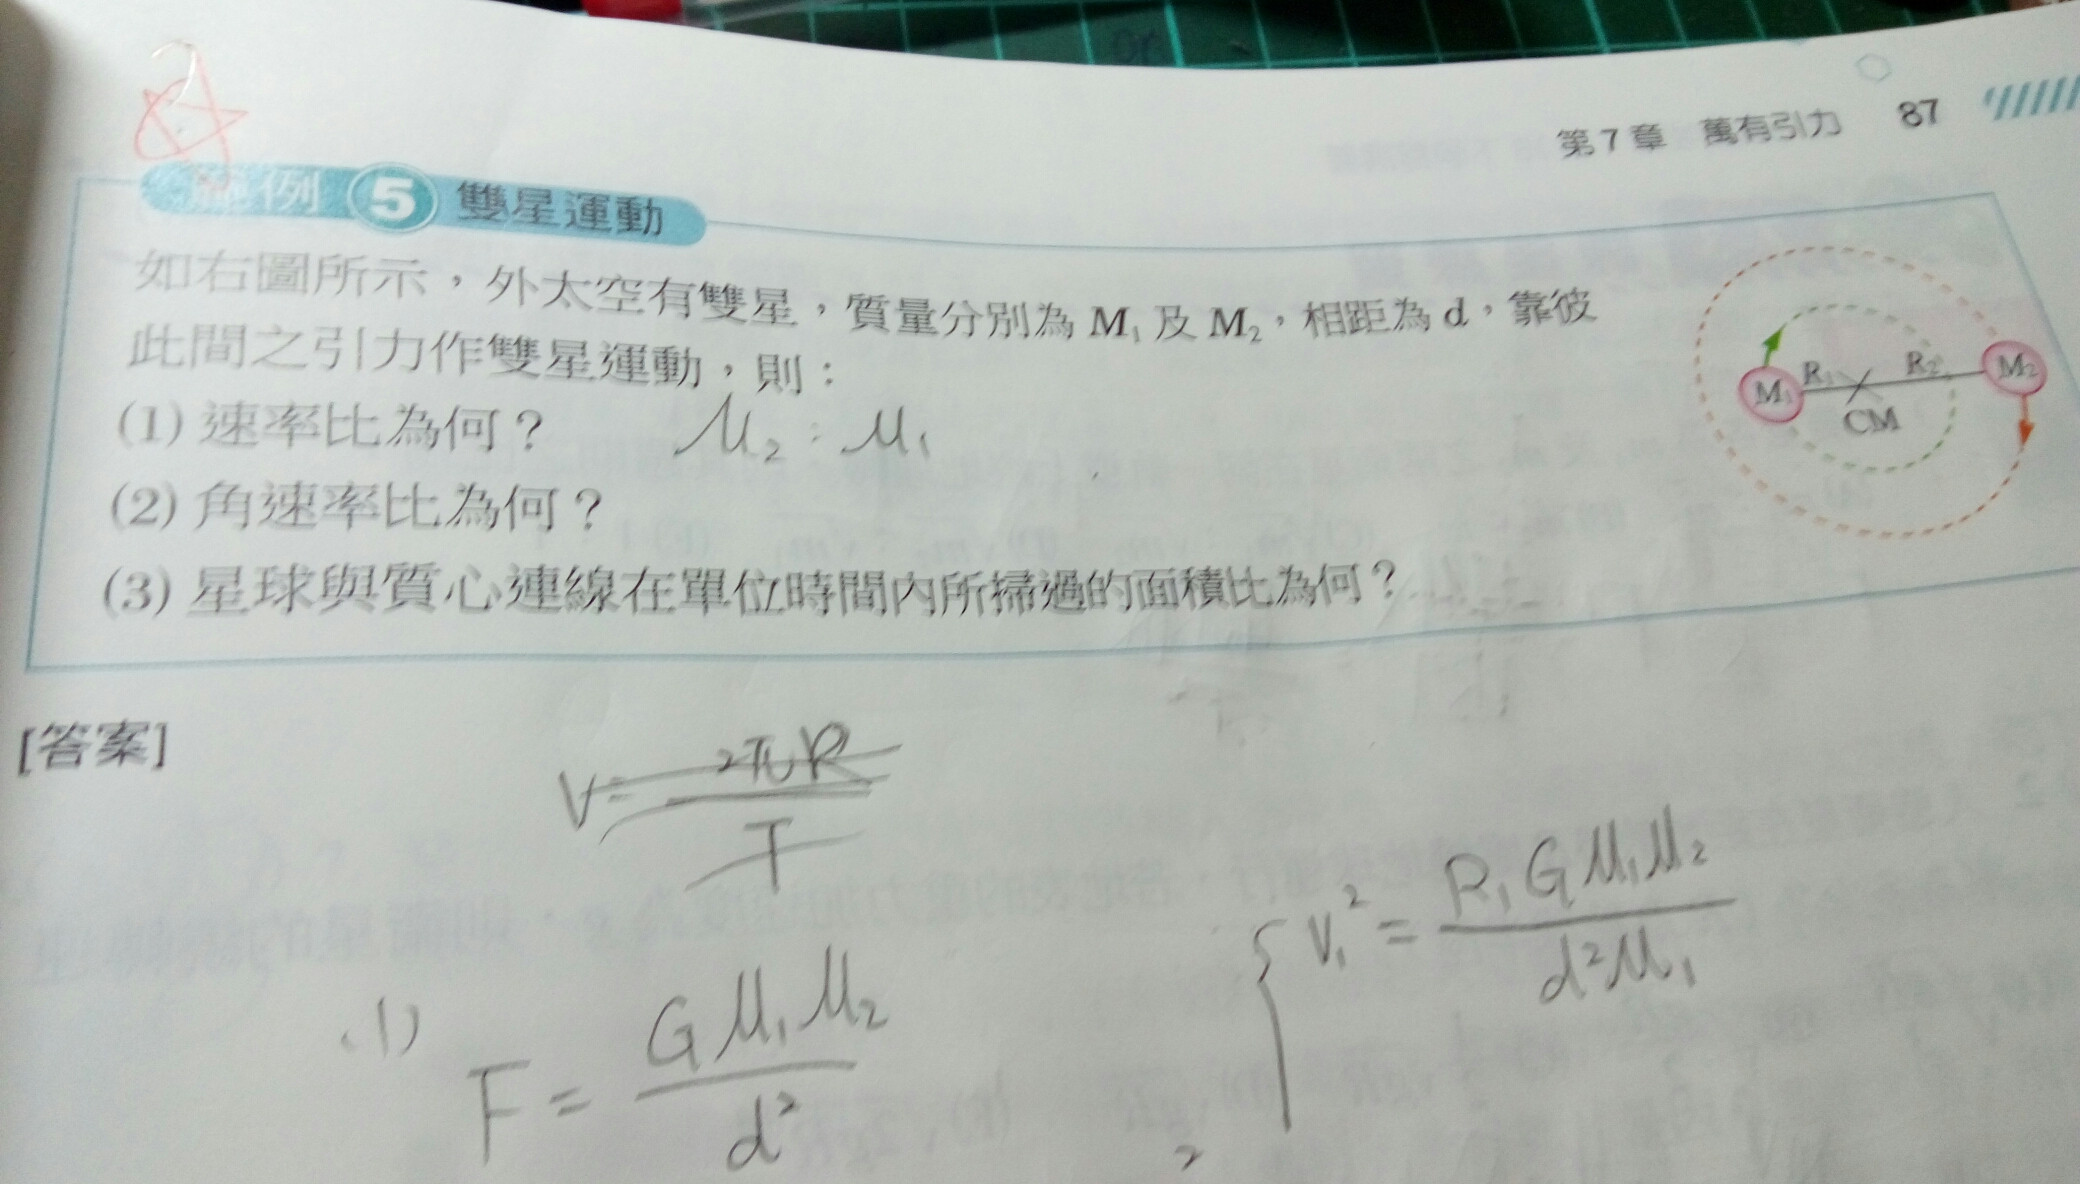 第7章 萬有引力 87
範例 5 雙星運動
如右圖所示，外太空有雙星，質量分別為 M₁ 及 M₂，相距為 d，靠彼
此間之引力作雙星運動，則：
(1) 速率比為何？ M₂ : M₁
(2) 角速率比為何？
(3) 星球與質心連線在單位時間內所掃過的面積比為何？
M₁ R₁ R₂ M₂
CM
[答案]
V = 2πR / T
(1) F = GM₁M₂ / d²
V₁² = R₁GM₁M₂ / d²M₁